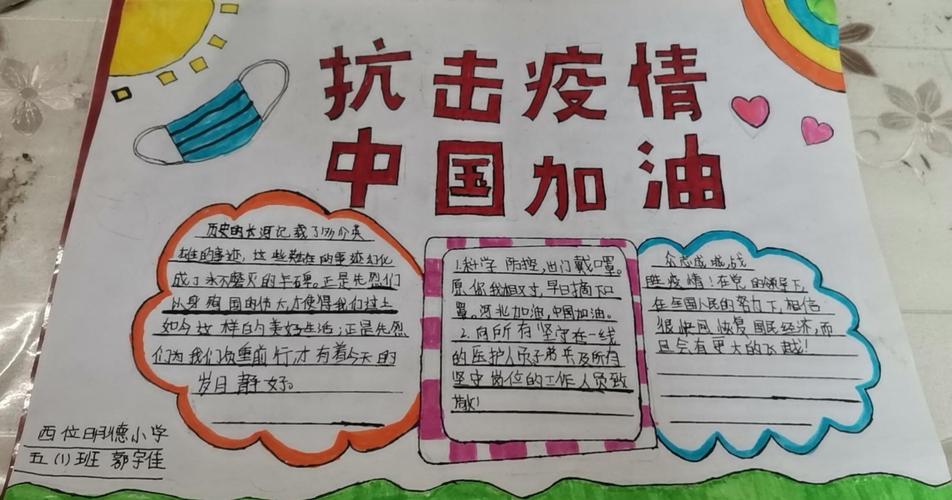 抗击疫情
中国加油
历史的长河记载了
雄的事迹，这些英雄的事迹幻化
成了永不磨灭的丰碑。正是先烈们
以身殉国的伟大，才使得我们过上
如今这样的美好生活；正是先烈
们为我们负重前行，才有着今天的
岁月静好。
1.科学防控，出门戴口罩。
愿你我相对，早日摘下口
罩。河北加油，中国加油。
2.向所有坚守在一线
的医护人员子弟兵及所有
坚守岗位的工作人员致
敬！
众志成城战
胜疫情！在党的领导下，
在全国人民的努力下，相信
很快回恢复国民经济，而
且会有更大的飞越！
西位明德小学
五（1）班 郭宇佳